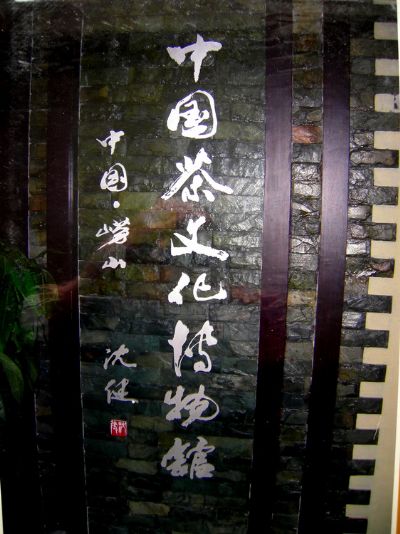 中国茶文化博物館
中国·崂山
沈健